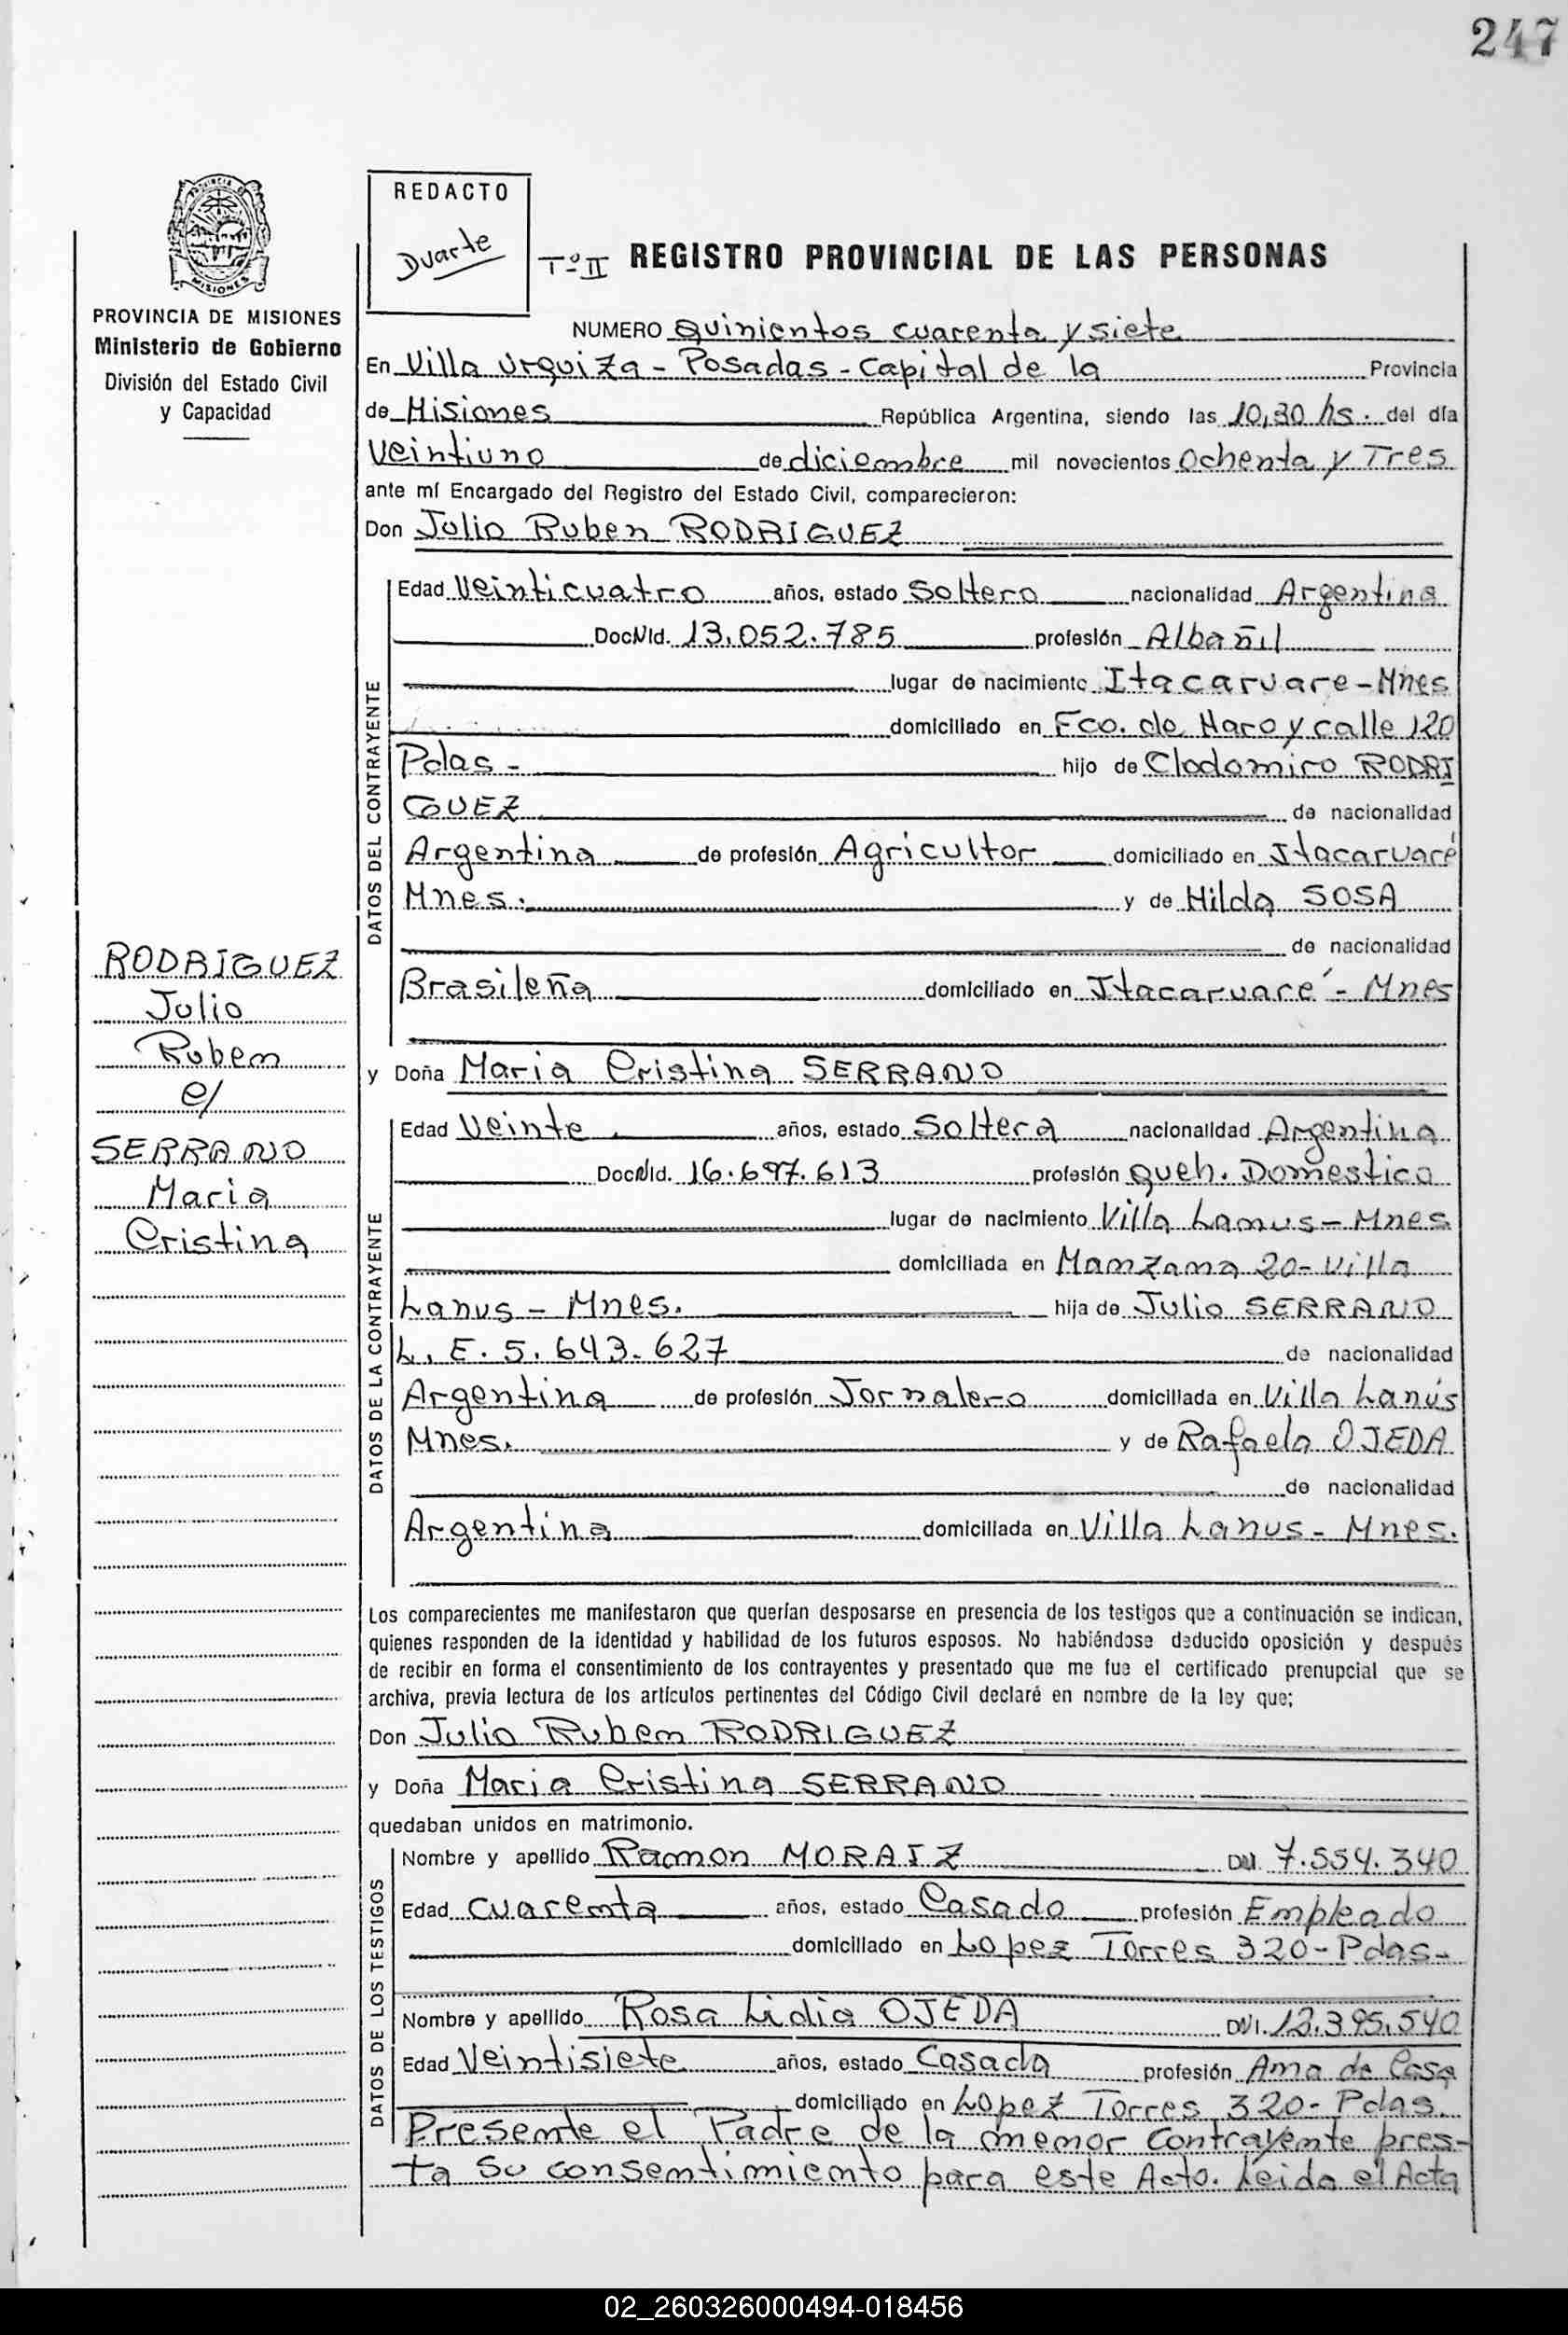 247
REDACTO
Duarte
Tº II REGISTRO PROVINCIAL DE LAS PERSONAS
MISIONES
PROVINCIA DE MISIONES
Ministerio de Gobierno
División del Estado Civil
y Capacidad
NUMERO Quinientos cuarenta y siete
En Villa Urquiza - Posadas - Capital de la Provincia
de Misiones República Argentina, siendo las 10,30 hs. del día
Veintiuno de diciembre mil novecientos ochenta y Tres
ante mí Encargado del Registro del Estado Civil, comparecieron:
Don Julio Ruben RODRIGUEZ
DATOS DEL CONTRAYENTE
Edad Veinticuatro años, estado Soltero nacionalidad Argentina
Doc.N.Id. 13.052.785 profesión Albañil
lugar de nacimiento Itacaruare - Mnes
domiciliado en Fco. de Haro y calle 120
Pdas - hijo de Clodomiro RODRI
GUEZ de nacionalidad
Argentina de profesión Agricultor domiciliado en Itacaruaré
Mnes. y de Hilda SOSA
de nacionalidad
Brasileña domiciliado en Itacaruaré - Mnes
RODRIGUEZ
Julio
Rubem
c/
SERRANO
Maria
Cristina
y Doña Maria Cristina SERRANO
DATOS DE LA CONTRAYENTE
Edad Veinte años, estado Soltera nacionalidad Argentina
Doc.N.Id. 16.697.613 profesión Queh. Domestico
lugar de nacimiento Villa Lanus - Mnes
domiciliada en Manzana 20 - Villa
Lanus - Mnes. hija de Julio SERRANO
L. E. 5.643.627 de nacionalidad
Argentina de profesión Jornalero domiciliada en Villa Lanús
Mnes. y de Rafaela OJEDA
de nacionalidad
Argentina domiciliada en Villa Lanus - Mnes.
Los comparecientes me manifestaron que querían desposarse en presencia de los testigos que a continuación se indican,
quienes responden de la identidad y habilidad de los futuros esposos. No habiéndose deducido oposición y después
de recibir en forma el consentimiento de los contrayentes y presentado que me fue el certificado prenupcial que se
archiva, previa lectura de los artículos pertinentes del Código Civil declaré en nombre de la ley que;
Don Julio Rubem RODRIGUEZ
y Doña Maria Cristina SERRANO
quedaban unidos en matrimonio.
DATOS DE LOS TESTIGOS
Nombre y apellido Ramon MORAIZ DNI. 7.554.340
Edad Cuarenta años, estado Casado profesión Empleado
domiciliado en Lopez Torres 320 - Pdas -
Nombre y apellido Rosa Lidia OJEDA DNI. 12.395.540
Edad Veintisiete años, estado Casada profesión Ama de Casa
domiciliado en Lopez Torres 320 - Pdas.
Presente el Padre de la menor contrayente pres-
ta su consentimiento para este Acto. Leida el Acta
02_260326000494-018456